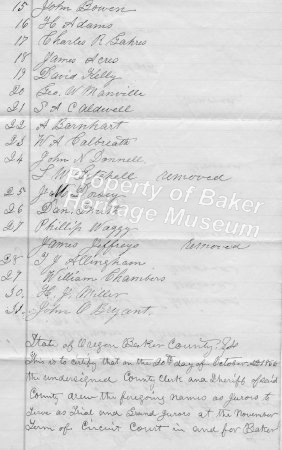 15 John Bowen
16 H Adams
17 Charles R Bakres
18 James Acres
19 David Kelly
20 Geo. W Manville
21 S A Caldwell
22 A Barnhart
23 W A Calbreath
24 John N Donnell
S W removed
25
26 Dan
27 Phillip Waggy
James Jeffreys removed
28 T J Allingham
29 William Chambers
30. H. J. Miller
31. John P Bryant.
State of Oregon Baker County, SS
This is to certify that on the 20th day of October AD 1866
the undersigned County Clerk and Sheriff of said
County drew the foregoing names as Jurors to
Serve as Trial and Grand Jurors at the November
Term of Circuit Court in and for Baker
Property of Baker
Heritage Museum